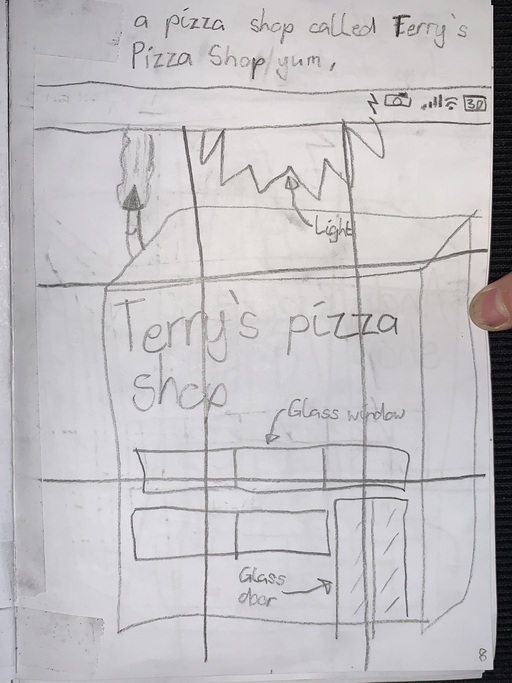 a pizza shop called Terry's
Pizza Shop yum,
30
Light
Terry's pizza
shop
Glass window
Glass
door
8